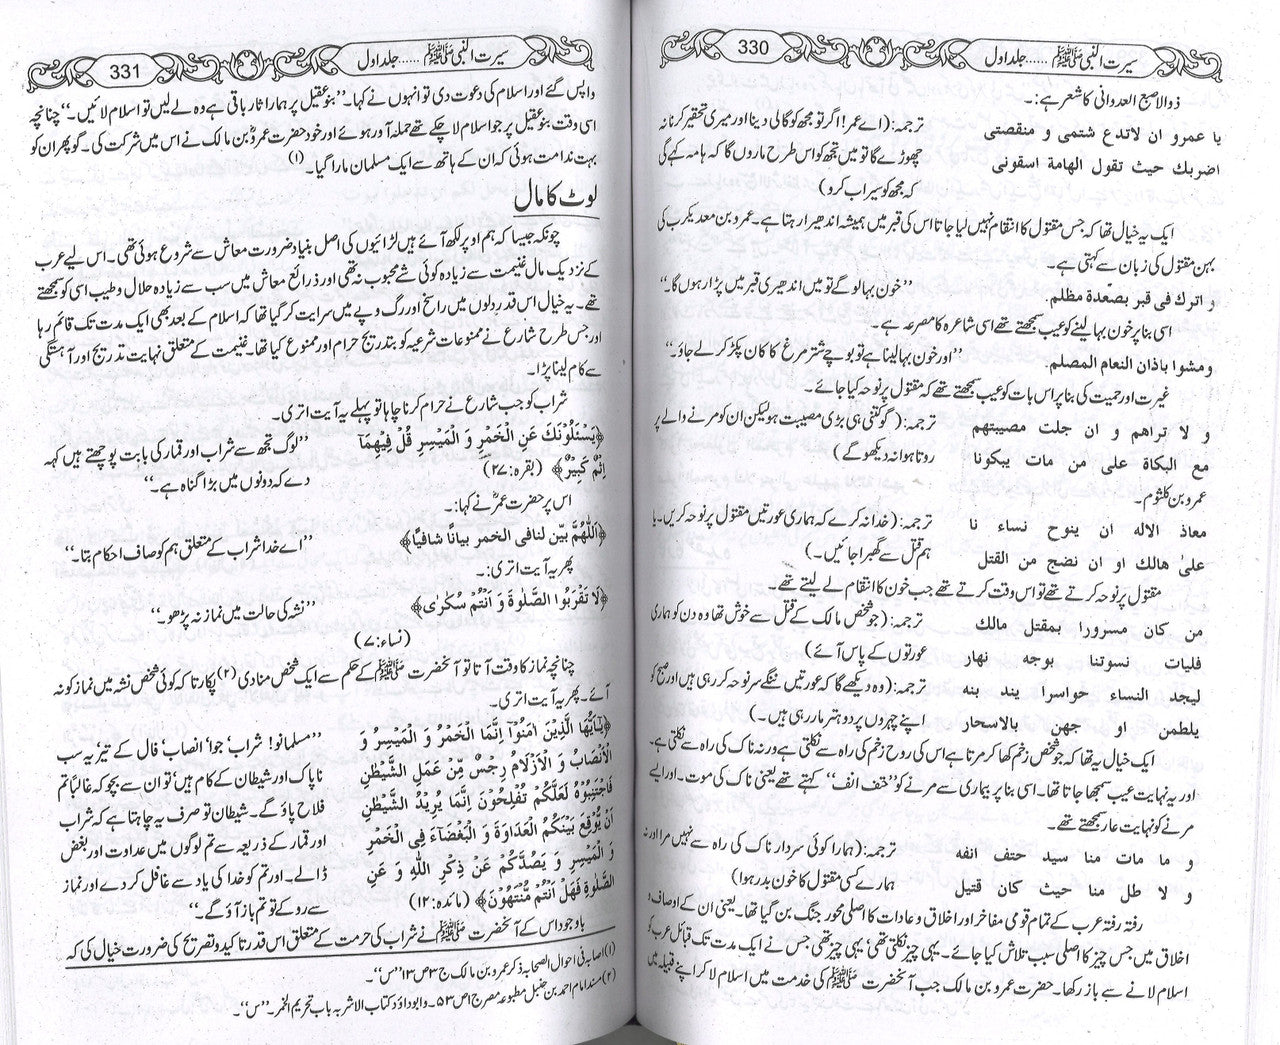 سیرت النبی ﷺ ...... جلد اول
330
ذوالاصبع العدوانی کا شعر ہے:۔
یا عمرو ان لاتدع شتمی و منقصتی
اضربك حیث تقول الهامة اسقونی
ترجمہ: (اے عمر! اگر تو مجھ کو گالی دینا اور میری تحقیر کرنا نہ
چھوڑے گا تو میں تجھ کو اس طرح ماروں گا کہ ہامہ کہے گی
کہ مجھ کو سیراب کرو)
ایک یہ خیال تھا کہ جس مقتول کا انتقام نہیں لیا جاتا اس کی قبر میں ہمیشہ اندھیرا رہتا ہے۔ عمرو بن معدیکرب کی
بہن مقتول کی زبان سے کہتی ہے۔
و اترك فی قبر بصعدة مظلم.
’’خون بہا لو گے تو میں اندھیری قبر میں پڑا رہوں گا۔‘‘
اسی بنا پر خون بہا لینے کو عیب سمجھتے تھے اسی شاعرہ کا مصرعہ ہے۔
ومشوا باذان النعام المصلم.
’’اور خون بہا لینا ہے تو بوچے شتر مرغ کا کان پکڑ کر لے جاؤ۔‘‘
غیرت اور حمیت کی بنا پر اس بات کو عیب سمجھتے تھے کہ مقتول پر نوحہ کیا جائے۔
و لا تراهم و ان جلت مصیبتهم
مع البكاة علی من مات یبكونا
ترجمہ: (گو کتنی ہی بڑی مصیبت ہو لیکن ان کو مرنے والے پر
روتا ہوا نہ دیکھو گے)
عمرو بن کلثوم۔
معاذ الاله ان ینوح نساء نا
علیٰ هالك او ان نضج من القتل
ترجمہ: (خدا نہ کرے کہ ہماری عورتیں مقتول پر نوحہ کریں۔ یا
ہم قتل سے گھبرا جائیں۔)
مقتول پر نوحہ کرتے تھے تو اس وقت کرتے تھے جب خون کا انتقام لے لیتے تھے۔
من كان مسرورا بمقتل مالك
فلیات نسوتنا بوجه نهار
ترجمہ: (جو شخص مالک کے قتل سے خوش تھا وہ دن کو ہماری
عورتوں کے پاس آئے)
لیجد النساء حواسرا یند بنه
یلطمن او جهن بالاسحار
ترجمہ: (وہ دیکھے گا کہ عورتیں ننگے سر نوحہ کر رہی ہیں اور صبح کو
اپنے چہروں پر دوہتڑ مار رہی ہیں۔)
ایک خیال یہ تھا کہ جو شخص زخم کھا کر مرتا ہے اس کی روح زخم کی راہ سے نکلتی ہے ورنہ ناک کی راہ سے نکلتی ہے۔
اور یہ نہایت عیب سمجھا جاتا تھا۔ اسی بنا پر بیماری سے مرنے کو ’’حتف انف‘‘ کہتے تھے یعنی ناک کی موت۔ اور ایسے
مرنے کو نہایت عار سمجھتے تھے۔
و ما مات منا سید حتف انفه
و لا طل منا حیث كان قتیل
ترجمہ: (ہمارا کوئی سردار ناک کی راہ سے نہیں مرا اور نہ
ہمارے کسی مقتول کا خون ہدر ہوا)
رفتہ رفتہ عرب کے تمام قومی مفاخر اور اخلاق و عادات کا اصلی محور جنگ بن گیا تھا۔ یعنی ان کے اوصاف و
اخلاق میں جس چیز کا اصلی سبب تلاش کیا جائے۔ یہی چیز نکلتی تھی‘ یہی چیز تھی جس نے ایک مدت تک قبائل عرب کو
اسلام لانے سے باز رکھا۔ حضرت عمرو بن مالک جب آنحضرت ﷺ کی خدمت میں اسلام لا کر اپنے قبیلہ میں
سیرت النبی ﷺ ...... جلد اول
331
واپس گئے اور اسلام کی دعوت دی تو انہوں نے کہا۔ ’’بنو عقیل پر ہمارا ثار باقی ہے وہ لے لیں تو اسلام لائیں۔‘‘ چنانچہ
اسی وقت بنو عقیل پر جو اسلام لا چکے تھے حملہ آور ہوئے اور خود حضرت عمروؓ بن مالک نے اس میں شرکت کی۔ گو پھر ان کو
بہت ندامت ہوئی کہ ان کے ہاتھ سے ایک مسلمان مارا گیا۔ (۱)
لوٹ کا مال
چونکہ جیسا کہ ہم اوپر لکھ آئے ہیں لڑائیوں کی اصل بنیاد ضرورت معاش سے شروع ہوئی تھی۔ اس لیے عرب
کے نزدیک مال غنیمت سے زیادہ کوئی شے محبوب نہ تھی اور ذرائع معاش میں سب سے زیادہ حلال و طیب اسی کو سمجھتے
تھے۔ یہ خیال اس قدر دلوں میں راسخ اور رگ و پے میں سرایت کر گیا تھا کہ اسلام کے بعد بھی ایک مدت تک قائم رہا
اور جس طرح شارع نے ممنوعات شرعیہ کو بتدریج حرام اور ممنوع کیا تھا۔ غنیمت کے متعلق نہایت تدریج اور آہستگی
سے کام لینا پڑا۔
شراب کو جب شارع نے حرام کرنا چاہا تو پہلے یہ آیت اتری۔
﴿یَسْئَلُوْنَكَ عَنِ الْخَمْرِ وَ الْمَیْسِرِ قُلْ فِیْهِمَآ
اِثْمٌ كَبِیْرٌ﴾ (بقرہ:۲۷)
’’لوگ تجھ سے شراب اور قمار کی بابت پوچھتے ہیں کہہ
دے کہ دونوں میں بڑا گناہ ہے۔‘‘
اس پر حضرت عمرؓ نے کہا:۔
﴿اَللّٰهُمَّ بَیِّن لنافی الخمر بیاناً شافیاً﴾
’’اے خدا شراب کے متعلق ہم کو صاف احکام بتا۔‘‘
پھر یہ آیت اتری:۔
﴿لَا تَقْرَبُوا الصَّلٰوةَ وَ اَنْتُمْ سُكٰرٰی﴾
(نساء:۷)
’’نشہ کی حالت میں نماز نہ پڑھو۔‘‘
چنانچہ نماز کا وقت آتا تو آنحضرت ﷺ کے حکم سے ایک شخص منادی (۲) پکارتا کہ کوئی شخص نشہ میں نماز کو نہ
آئے۔ پھر یہ آیت اتری۔
﴿یٰٓاَیُّهَا الَّذِیْنَ اٰمَنُوْٓا اِنَّمَا الْخَمْرُ وَ الْمَیْسِرُ وَ
الْاَنْصَابُ وَ الْاَزْلَامُ رِجْسٌ مِّنْ عَمَلِ الشَّیْطٰنِ
فَاجْتَنِبُوْهُ لَعَلَّكُمْ تُفْلِحُوْنَ اِنَّمَا یُرِیْدُ الشَّیْطٰنُ
اَنْ یُّوْقِعَ بَیْنَكُمُ الْعَدَاوَةَ وَ الْبَغْضَآءَ فِی الْخَمْرِ
وَ الْمَیْسِرِ وَ یَصُدَّكُمْ عَنْ ذِكْرِ اللّٰهِ وَ عَنِ
الصَّلٰوةِ فَهَلْ اَنْتُمْ مُّنْتَهُوْنَ﴾ (مائدہ:۱۲)
’’مسلمانو! شراب‘ جوا‘ انصاب‘ فال کے تیر‘ یہ سب
ناپاک اور شیطان کے کام ہیں‘ تو ان سے بچو کہ غالباً تم
فلاح پاؤ گے۔ شیطان تو صرف یہ چاہتا ہے کہ شراب
اور قمار کے ذریعہ سے تم لوگوں میں عداوت اور بغض
ڈالے۔ اور تم کو خدا کی یاد سے غافل کر دے اور نماز
سے روکے تو تم باز آؤ گے۔‘‘
باوجود اس کے آنحضرت ﷺ نے شراب کی حرمت کے متعلق اس قدر تاکید و تصریح کی ضرورت خیال کی کہ
(۱) اصابہ فی احوال الصحابہ ذکر عمرو بن مالک ج ۳ ص ۱۳ ’’س‘‘۔
(۲) مسند امام احمد بن حنبل مطبوعہ مصر ج ۱ ص ۵۳۔ و ابوداؤد کتاب الاشربہ باب تحریم الخمر۔ ’’س‘‘۔